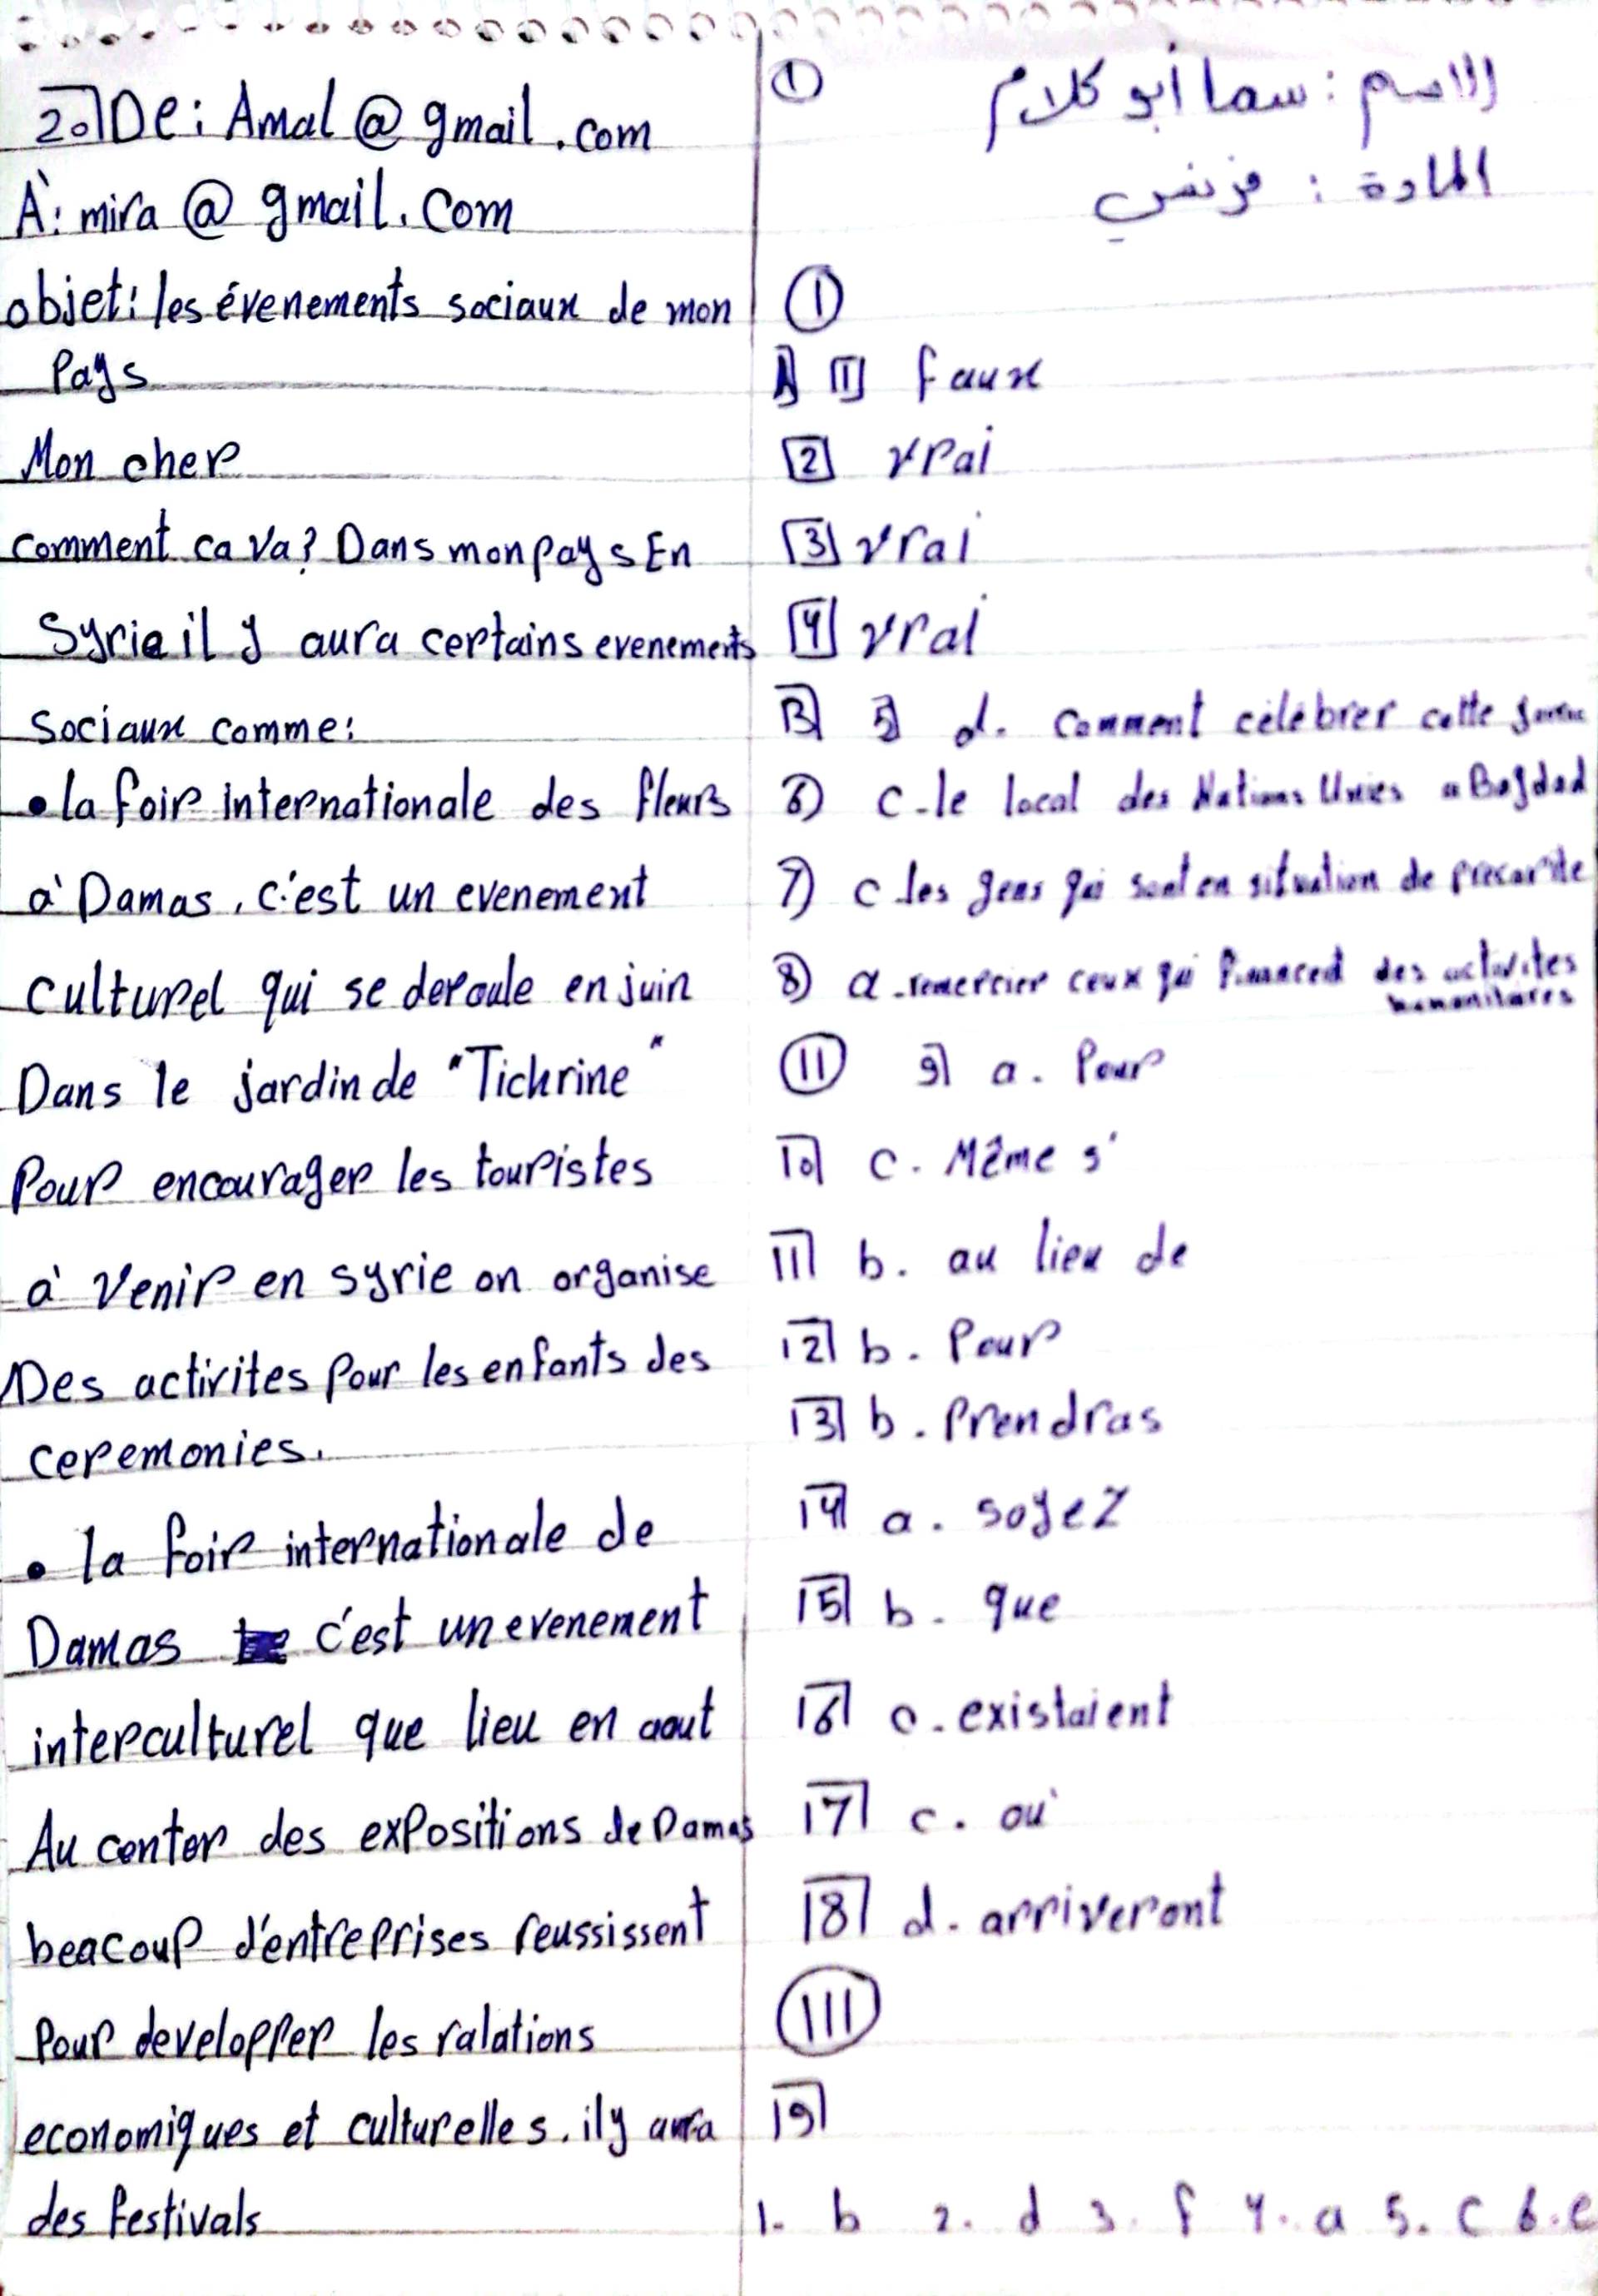 ①
الاسم : سما أبو كلام
المادة : فرنسي
①
A] 1] faux
2] vrai
3] vrai
4] vrai
B] 5] d. Comment célébrer cette
6) c-le local des Nations Unies a Bagdad
7) c les gens qui sont en situation de precarite
8) a-remercier ceux qui financent des activites
humanitaires
11 9] a. Pour
10] c. Même s'
11] b. au lieu de
12] b. Pour
13] b. Prendras
14] a. soyez
15] b. que
16] c. existaient
17] c. où
18] d. arriveront
111
19]
1. b 2. d 3. f 4. a 5. c 6. e
20] De: Amal@gmail.com
À: mira@gmail.com
objet: les évenements sociaux de mon
Pays
Mon cher
comment ca va? Dans mon pays En
Syrie il y aura certains evenements
sociaux comme:
• la foir internationale des fleurs
à Damas, c'est un evenement
culturel qui se deroule en juin
Dans le jardin de "Tichrine"
Pour encourager les touristes
à venir en syrie on organise
Des activites Pour les enfants des
ceremonies.
• la foir internationale de
Damas c'est un evenement
interculturel que lieu en aout
Au center des expositions de Damas
beacoup d'entreprises reussissent
Pour developper les ralations
economiques et culturelles. il y aura
des festivals